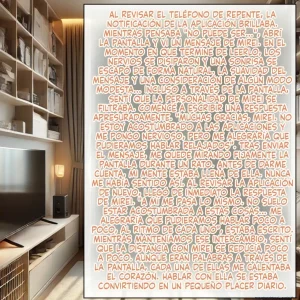 AL REVISAR EL TELÉFONO DE REPENTE, LA
NOTIFICACIÓN DE LA APLICACIÓN BRILLABA.
MIENTRAS PENSABA "NO PUEDE SER...", ABRÍ
LA PANTALLA Y VI UN MENSAJE DE MIREI. EN EL
MOMENTO EN QUE TERMINÉ DE LEERLO, LOS
NERVIOS SE DISIPARON Y UNA SONRISA SE
ESCAPÓ DE FORMA NATURAL. LA SUAVIDAD DEL
MENSAJE Y UNA CONSIDERACIÓN DE ALGÚN MODO
MODESTA... INCLUSO A TRAVÉS DE LA PANTALLA,
SENTÍ QUE LA PERSONALIDAD DE MIREI SE
FILTRABA. COMENCÉ A ESCRIBIR UNA RESPUESTA
APRESURADAMENTE. "MUCHAS GRACIAS, MIREI. NO
ESTOY ACOSTUMBRADO A LAS APLICACIONES Y
ME PONGO NERVIOSO, PERO ME ALEGRARÍA QUE
PUDIÉRAMOS HABLAR RELAJADOS". TRAS ENVIAR
EL MENSAJE, ME QUEDÉ MIRANDO FIJAMENTE LA
PANTALLA DURANTE UN RATO. ANTES DE DARME
CUENTA, MI MENTE ESTABA LLENA DE ELLA. NUNCA
ME HABÍA SENTIDO ASÍ. AL REVISAR LA APLICACIÓN
DE NUEVO, LLEGÓ DE INMEDIATO LA RESPUESTA
DE MIREI. "A MÍ ME PASA LO MISMO, NO SUELO
ESTAR ACOSTUMBRADA A ESTAS COSAS... ME
ALEGRARÍA QUE PUDIÉRAMOS HABLAR POCO A
POCO, AL RITMO DE CADA UNO", ESTABA ESCRITO.
MIENTRAS MANTENÍAMOS EL INTERCAMBIO, SENTÍ
QUE LA DISTANCIA CON MIREI SE REDUCÍA POCO
A POCO. AUNQUE ERAN PALABRAS A TRAVÉS DE
LA PANTALLA, CADA UNA DE ELLAS ME CALENTABA
EL CORAZÓN. HABLAR CON ELLA SE ESTABA
CONVIRTIENDO EN UN PEQUEÑO PLACER DIARIO.